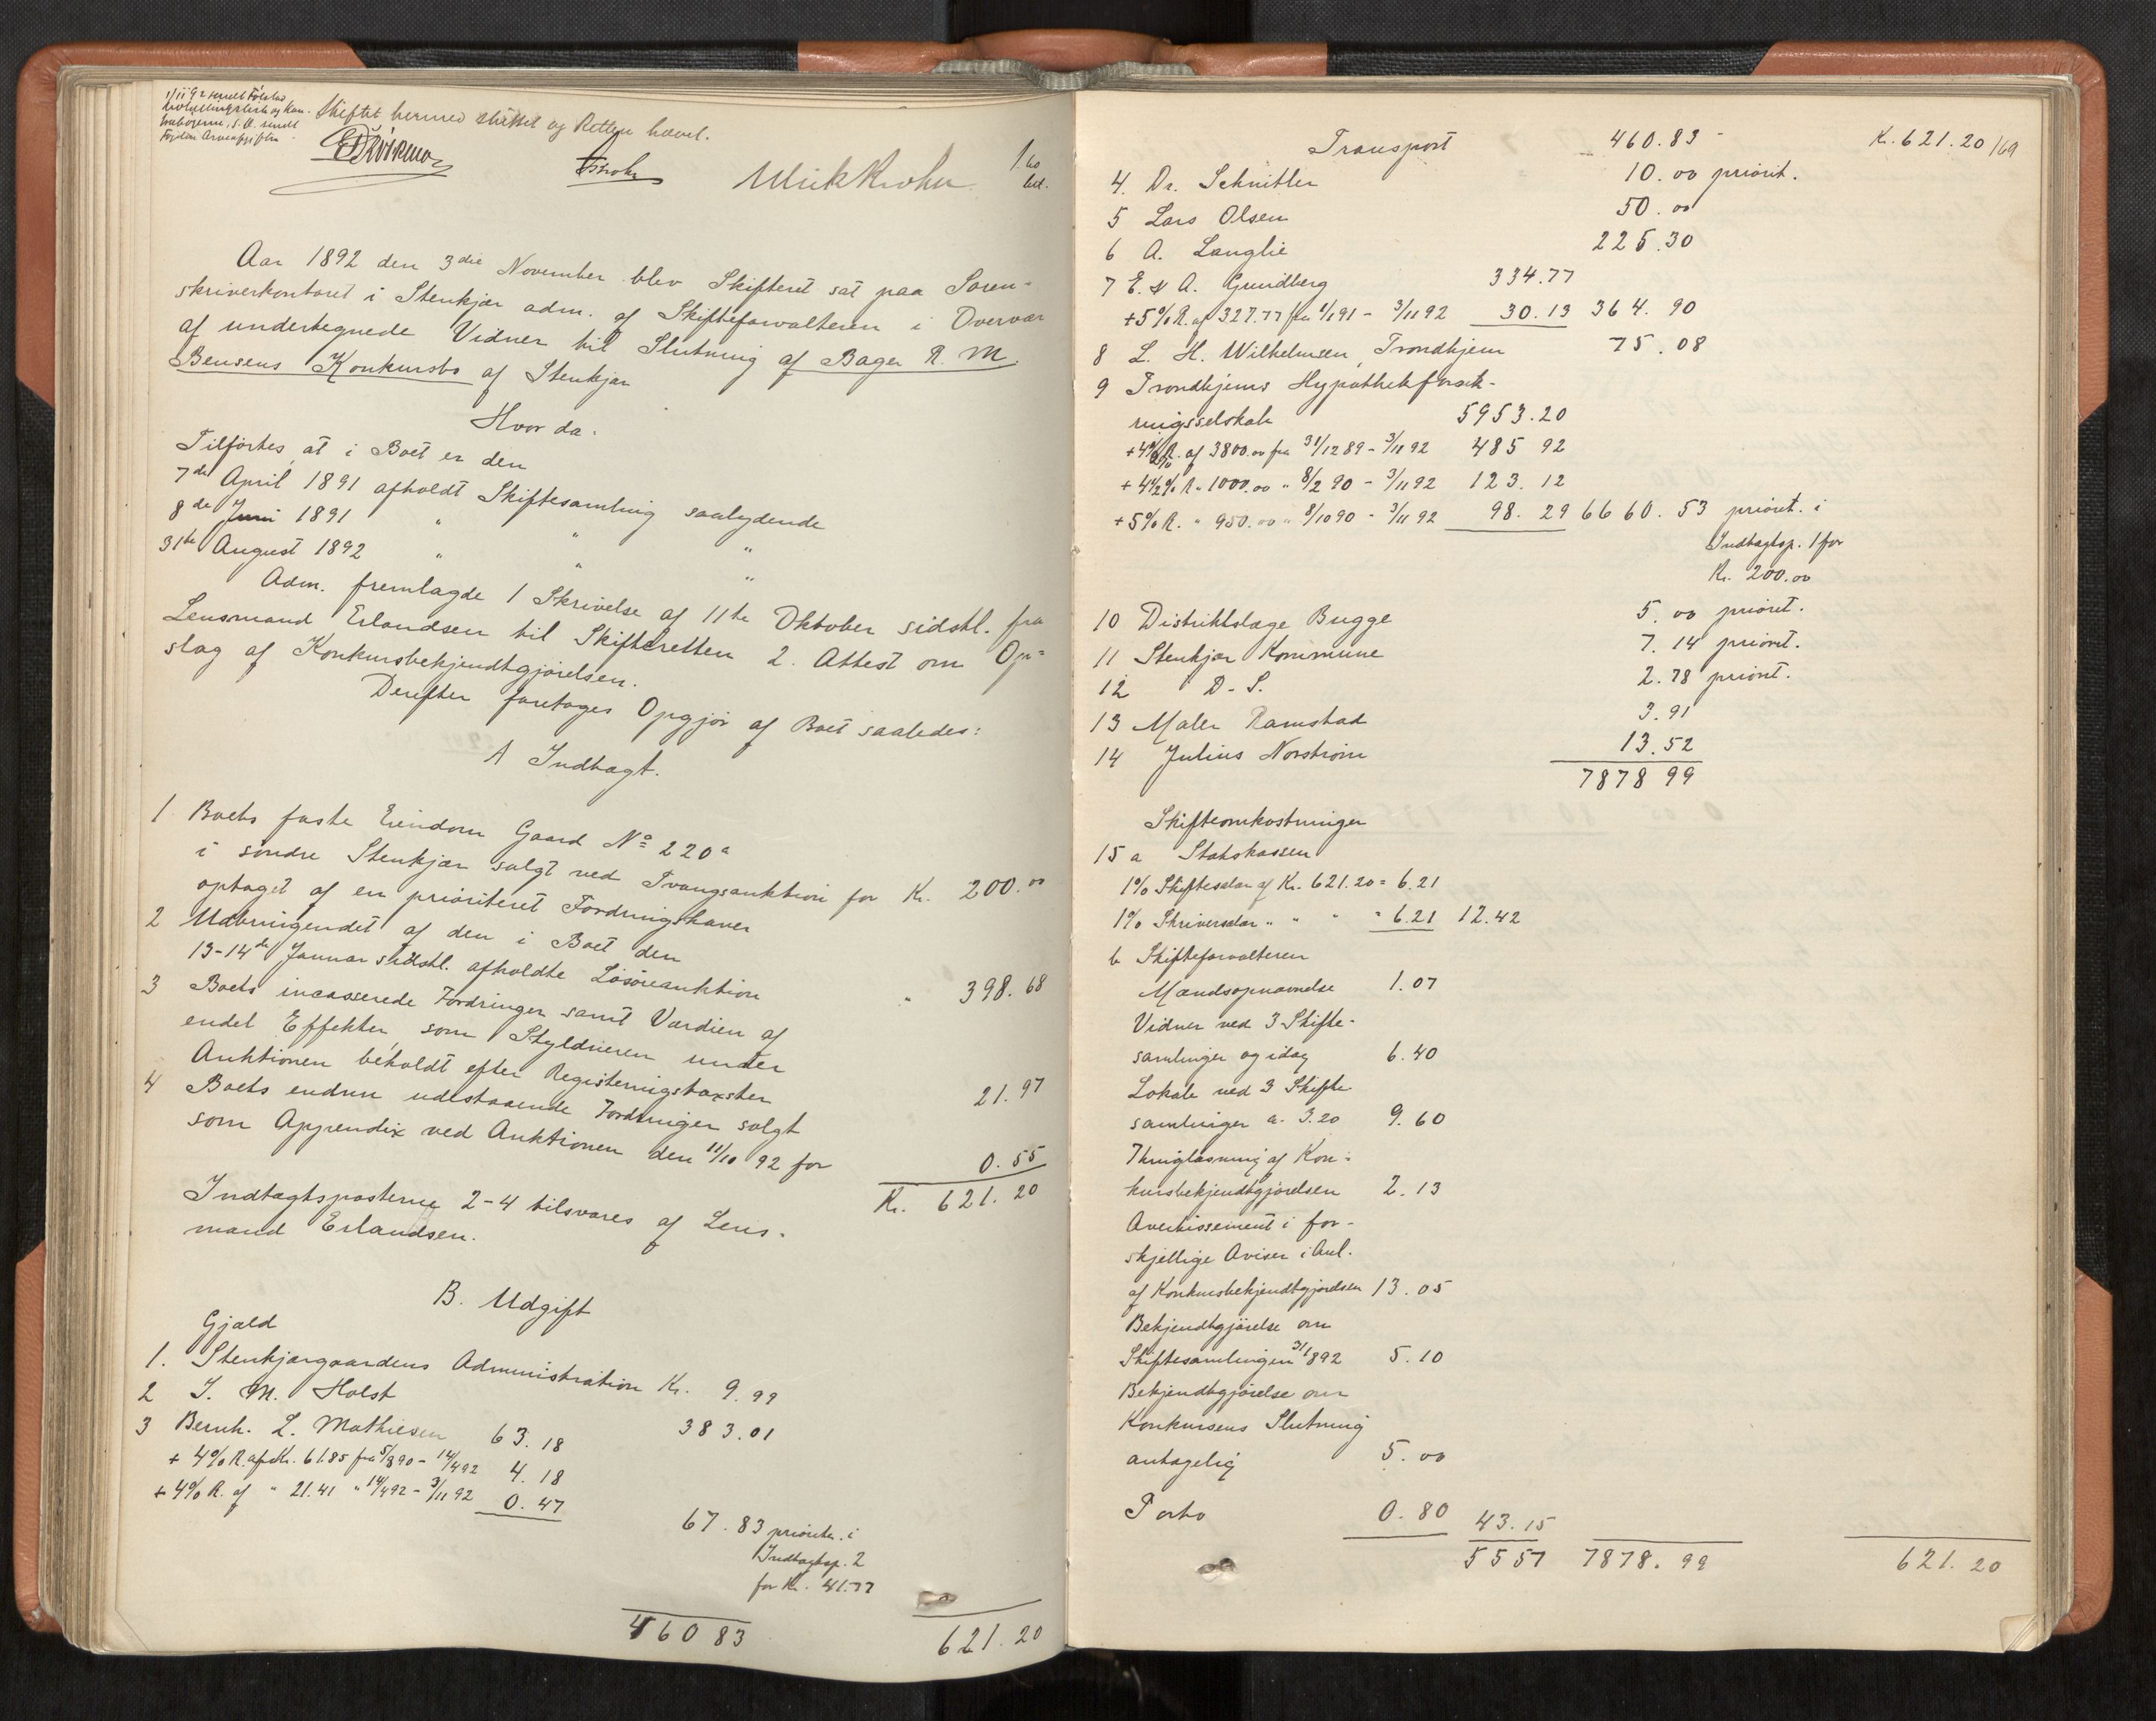 1/11 92 sendt Følstad
Skiftet hermed sluttet og Retten hævet.
Ulrik Krohn
Aar 1892 den 3die November blev Skifteret sat paa Soren-
skriverkontoret i Stenkjær adm. af Skifteforvalteren i Overvær
af undertegnede Vidner til Slutning af Bager R. M.
Bensens Konkursbo af Stenkjær
Hvor da.
Tilførtes, at i Boet er den
7de April 1891 afholdt Skiftesamling saalydende
8de Juni 1891 " " "
31te August 1892 " " "
Adm. fremlagde 1 Skrivelse af 11te Oktober sidstl. fra
Lensmand Erlandsen til Skifteretten 2. Attest om Op-
slag af Konkursbekjendtgjørelsen.
Derefter foretoges Opgjør af Boet saaledes:
A Indtagt.
1 Boets faste Eiendom Gaard No 220a
i søndre Stenkjær solgt ved Tvangsauktion for Kr. 200.00
optaget af en prioriteret Fordringshaver
2 Udbringendet af den i Boet den
13-14de Januar sidstl. afholdte Løsøreauktion " 398.68
3 Boets incasserede Fordringer samt Værdien af
endel Effekter, som Skyldneren under
Auktionen beholdt efter Registeringstaxster 21.97
4 Boets endnu udestaaende Fordringer solgt
som Appendix ved Auktionen den 11/10 92 for 0.55
Kr. 621.20
Indtægtsposterne 2-4 tilsvares af Lens-
mand Erlandsen.
B. Udgift
Gjæld
1. Stenkjærgaardens Administration Kr. 9.99
2 J. M. Holst 383.01
3 Bernh. L. Mathiesen 63.18
+ 4% R. af Kr. 61.85 fra 5/8 90 - 14/4 92 4.18
+ 4% R. af " 21.41 " 14/4 92 - 3/11 92 0.47
67.83 priorit. i
Indtagtsp. 2
for Kr. 41.77
460 83 621.20
Transport 460.83 Kr. 621.20 169
4. Dr. Schnitler 10.00 priorit.
5 Lars Olsen 50.00
6 A. Langlie 225.30
7 E. & A. Grundberg 334.77
+5% R. af 327.77 fra 1/1 91 - 3/11 92 30.13 364.90
8 L. H. Wilhelmsen, Trondhjem 75.08
9 Trondhjems Hypothekforsik-
ringsselskab 5953.20
+4½% R. af 3800.00 fra 31/12 89 - 3/11 92 485 92
+ 4½% R. " 1000.00 " 8/2 90 - 3/11 92 123.12
+5% R. " 950.00 " 8/10 90 - 3/11 92 98.29 6660.53 priorit. i
Indtagtsp. 1 for
Kr. 200.00
10 Distriktslæge Bugge 5.00 priorit.
11 Stenkjær Kommune 7.14 priorit.
12 D. S. 2.78 priorit.
13 Maler Ramstad 3.91
14 Julius Norstrøm 13.52
7878 99
Skifteomkostninger
15 a Statskassen
1% Skiftesalær af Kr. 621.20 = 6.21
1% Skriversalær " " " = 6.21 12.42
b Skifteforvalteren
Mændsopnævnelse 1.07
Vidner ved 3 Skifte-
samlinger og idag 6.40
Lokale ved 3 Skifte
samlinger a. 3.20 9.60
Thinglæsning af Kon-
kursbekjendtgjørelsen 2.13
Avertissement i for-
skjellige Aviser i Anl.
af Konkursbekjendtgjørelsen 13.05
Bekjendtgjørelse om
Skiftesamlingen 31/8 92 5.10
Bekjendtgjørelse om
Konkursens Slutning
antagelig 5.00
Porto 0.80 43.15
55 57 7878.99 621.20